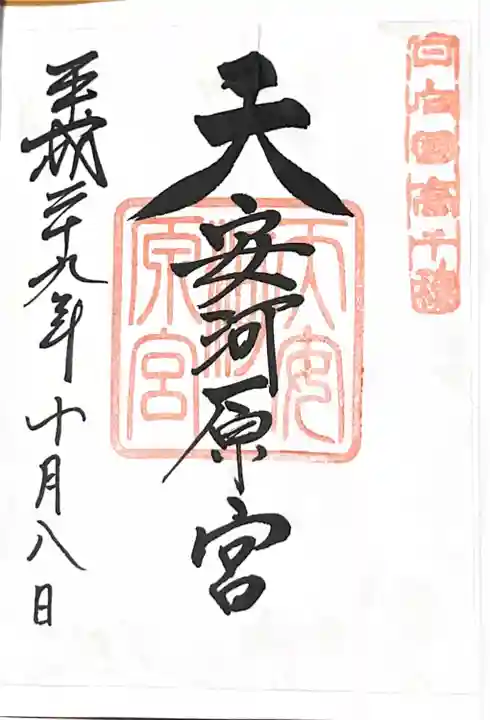 日向国高千穂
天安河原宮
天安河原宮
平成二十九年十月八日